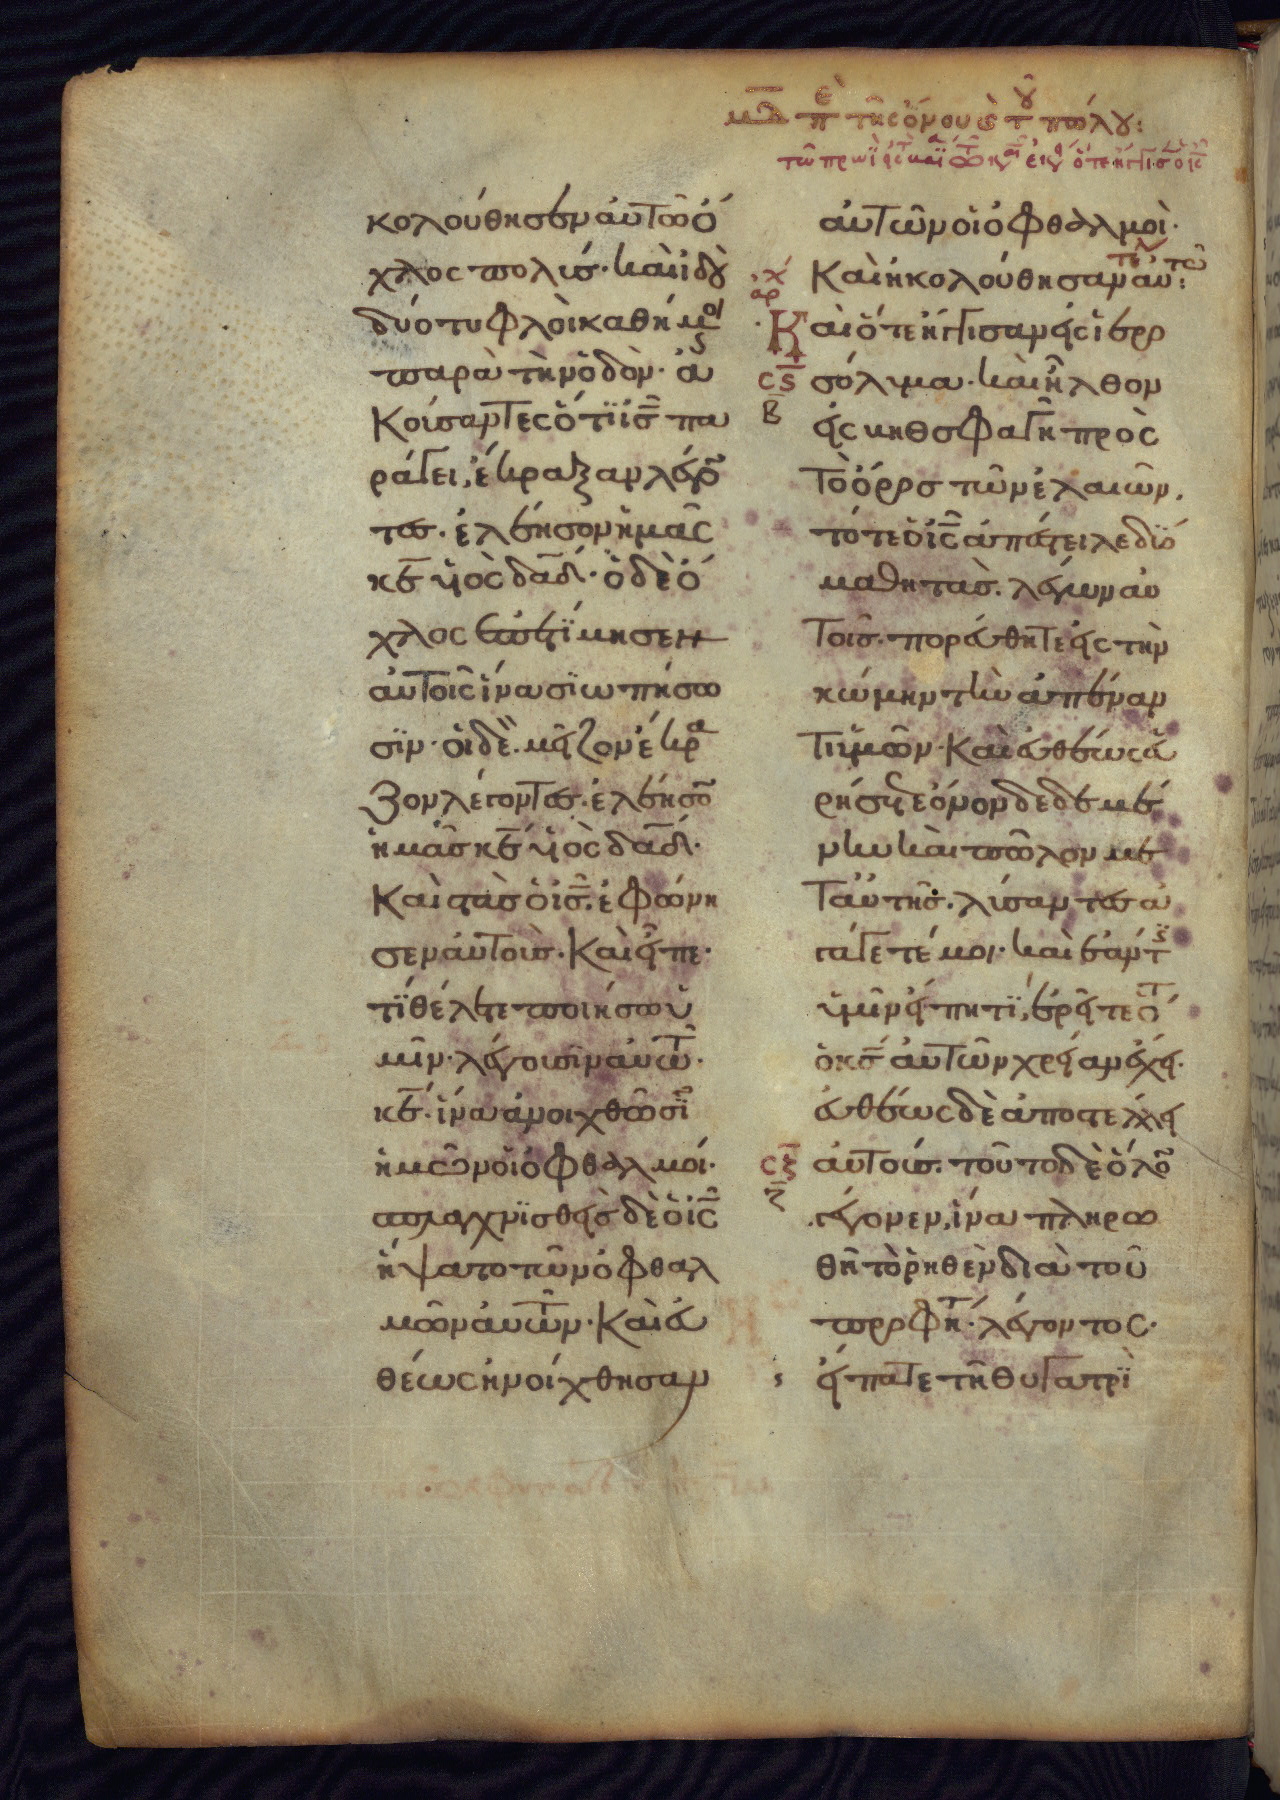 με̅ περὶ τῆς ὄνου καὶ τοῦ πώλου:
κολούθησεν αὐτῶ ὄ
χλος πολύς· καὶ ἰδοὺ
δύο τυφλοὶ καθήμοι
παρὰ τὴν ὁδὸν· ἀ
κούσαντες ὅτι ἰς̅ πα
ράγει, ἔκραξαν λέγο̅
τες· ἐλέησον ἡμᾶς
κε̅ ὑὸς δαδ̅· ὁ δὲ ὄ
χλος ἐπετίμησεν
αὐτοῖς ἵνα σιωπήσω
σιν· οἱ δὲ μεῖζον ἔκρα
ζον λέγοντες· ἐλέησο̅
ἡμᾶς κε̅ ὑὸς δαδ̅·
καὶ στὰς ὁ ἰς̅. ἐφώνη
σεν αὐτούς· καὶ εἶπε·
τί θέλετε ποιήσω ὑ
μῖν· λέγουσιν αὐτῶ·
κε̅· ἵνα ἀνοιχθῶσϊ
ἡμῶν οἱ ὀφθαλμοί·
σπλαγχνισθεὶς δὲ ὁ ἰς̅
ἥψατο τῶν ὀφθαλ
μῶν αὐτῶν· καὶ εὐ
θέως ἠνοίχθησαν
αὐτῶν οἱ ὀφθαλμοὶ·
καὶ ἠκολούθησαν αὐτῶ:
τέλ
ἀρχ
Καὶ ὅτε ἤγγισαν εἰς ἱερο
σς̅ σόλυμα· καὶ ἦλθον
β̅ εἰς βηθσφαγῆ πρὸς
τὸ ὄρος τῶν ἐλαιῶν,
τότε ὁ ἰς̅ ἀπέστειλε δύο
μαθητὰς. λέγων αὐ
τοῖς· πορεύθητε εἰς τὴν
κώμην τὴν ἀπέναν
τι ὑμῶν· καὶ εὐθέως εὑ
ρήσετε ὄνον δεδεμέ
νην καὶ πῶλον με
τ αὐτῆς. λύσαντες ἀ
γάγετέ μοι· καὶ ἐάν τις
ὑμῖν εἴπη τι, ἐρεῖτε ὅτ
ὁ κς̅ αὐτῶν χρείαν ἔχει·
εὐθέως δὲ ἀποστέλλει
σζ̅ αὐτούς. τοῦτο δὲ ὅλο̅
ζ̅ γέγονεν, ἵνα πληρω
θῆ τὸ ῥηθὲν διὰ τοῦ
προφήτ· λέγοντος·
εἴπατε τῆ θυγατρὶ